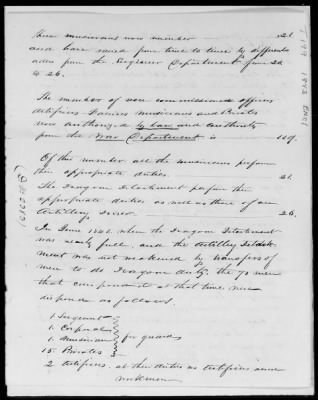 These musicians now number 21.
and have varied from time to time by different
orders from the Engineer Department from 20
to 26.
The number of non commissioned officers
Artificers Farriers Musicians and Privates
now authorized by law and authority
from the War Department is 119.
Of this number all the musicians perform
their appropriate duties. 21.
The Dragoon Detachment perform their
appropriate duties as well as those of an
Artillery Driver 26.
In June 1842 when the Dragoon Detachment
was nearly full, and the Artillery Detach-
ment was not weakened by transfers of
men to do Dragoon duty, the 70 men
that composed it at that time were
disposed as follows.
1 Sergeant
1 Corporal
1 Musician } for guards
15 Privates
2 Artificers, at their duties as Artificers
workmen